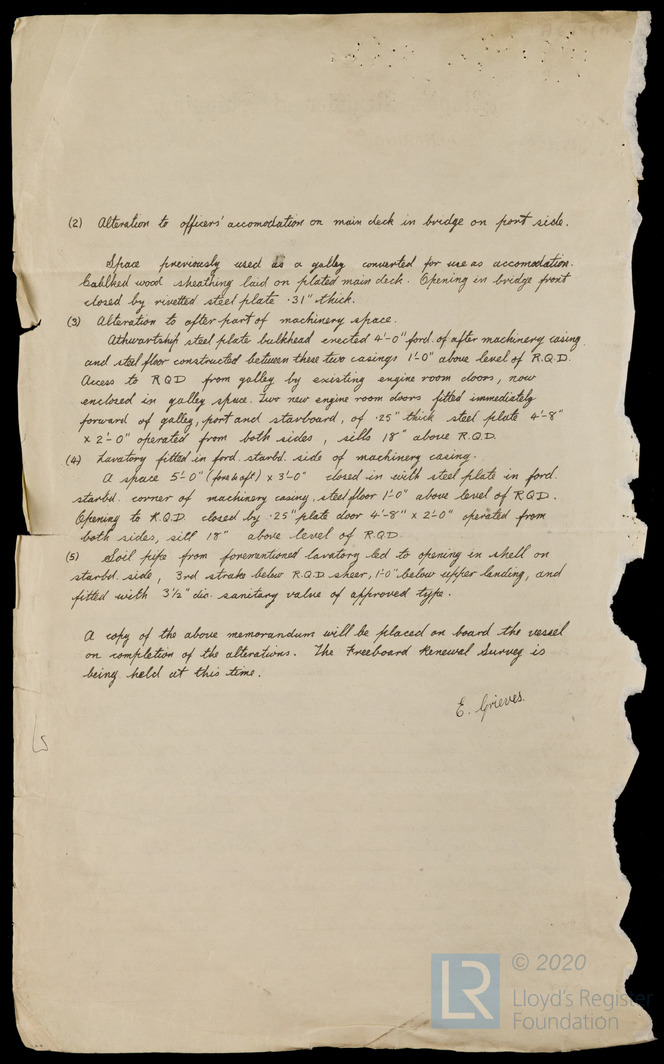 (2) Alteration to officers' accomodation on main deck in bridge on port side.
Space previously used as a galley converted for use as accomodation.
Caulked wood sheathing laid on plated main deck. Opening in bridge front
closed by rivetted steel plate ·31" thick.
(3) Alteration to after part of machinery space.
Athwartship steel plate bulkhead erected 4'-0" ford. of after machinery casing
and steel floor constructed between these two casings 1'-0" above level of R.Q.D.
Access to RQD from galley by existing engine room doors, now
enclosed in galley space. Two new engine room doors fitted immediately
forward of galley, port and starboard, of ·25" thick steel plate 4'-8"
x 2'-0" operated from both sides, sills 18" above R.Q.D.
(4) Lavatory fitted in ford. starbd. side of machinery casing.
A space 5'-0" (fore & aft) x 3'-0" closed in with steel plate in ford.
starbd. corner of machinery casing, steel floor 1'-0" above level of R.Q.D.
Opening to R.Q.D. closed by ·25" plate door 4'-8" x 2'-0" operated from
both sides, sill 18" above level of R.Q.D.
(5) Soil pipe from forementioned lavatory led to opening in shell on
starbd. side, 3rd strake below R.Q.D. sheer, 1'-0" below upper landing, and
fitted with 3½" dia. sanitary valve of approved type.
A copy of the above memorandum will be placed on board the vessel
on completion of the alterations. The Freeboard Renewal Survey is
being held at this time.
E. Grieves.
© 2020
LR
Lloyd's Register
Foundation